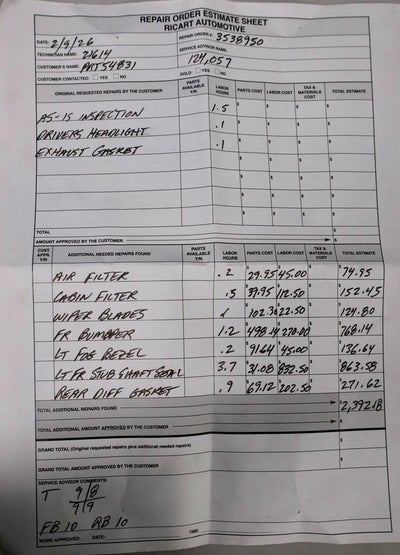 REPAIR ORDER ESTIMATE SHEET
RICART AUTOMOTIVE
DATE: 2/9/26 REPAIR ORDER #: 3538950
TECHNICIAN NAME: 21614 SERVICE ADVISOR NAME:
CUSTOMER'S NAME: PRT54831 124,057
CUSTOMER CONTACTED: YES NO SOLD: YES NO
ORIGINAL REQUESTED REPAIRS BY THE CUSTOMER PARTS AVAILABLE Y/N LABOR HOURS PARTS COST LABOR COST TAX & MATERIALS COST TOTAL ESTIMATE
AS-IS INSPECTION 1.5 $ $ $ $
DRIVERS HEADLIGHT .1
EXHAUST GASKET .1
TOTAL
AMOUNT APPROVED BY THE CUSTOMER $
CUST. APPR. Y/N ADDITIONAL NEEDED REPAIRS FOUND PARTS AVAILABLE Y/N LABOR HOURS PARTS COST LABOR COST TAX & MATERIALS COST TOTAL ESTIMATE
AIR FILTER .2 $29.95 $45.00 $ $74.95
CABIN FILTER .5 39.95 112.50 152.45
WIPER BLADES .1 102.30 22.50 124.80
FR BUMPER 1.2 498.14 270.00 768.14
LT FOG BEZEL .2 91.64 45.00 136.64
LT FR STUB SHAFT SEAL 3.7 31.08 832.50 863.58
REAR DIFF GASKET .9 69.12 202.50 271.62
TOTAL ADDITIONAL REPAIRS FOUND $2,392.18
TOTAL ADDITIONAL AMOUNT APPROVED BY THE CUSTOMER $
GRAND TOTAL (Original requested repairs plus additional needed repairs) $
GRAND TOTAL AMOUNT APPROVED BY THE CUSTOMER $
SERVICE ADVISOR COMMENTS:
T 9/8
9/9
FB 10 RB 10
WORK APPROVED: DATE: TIME: